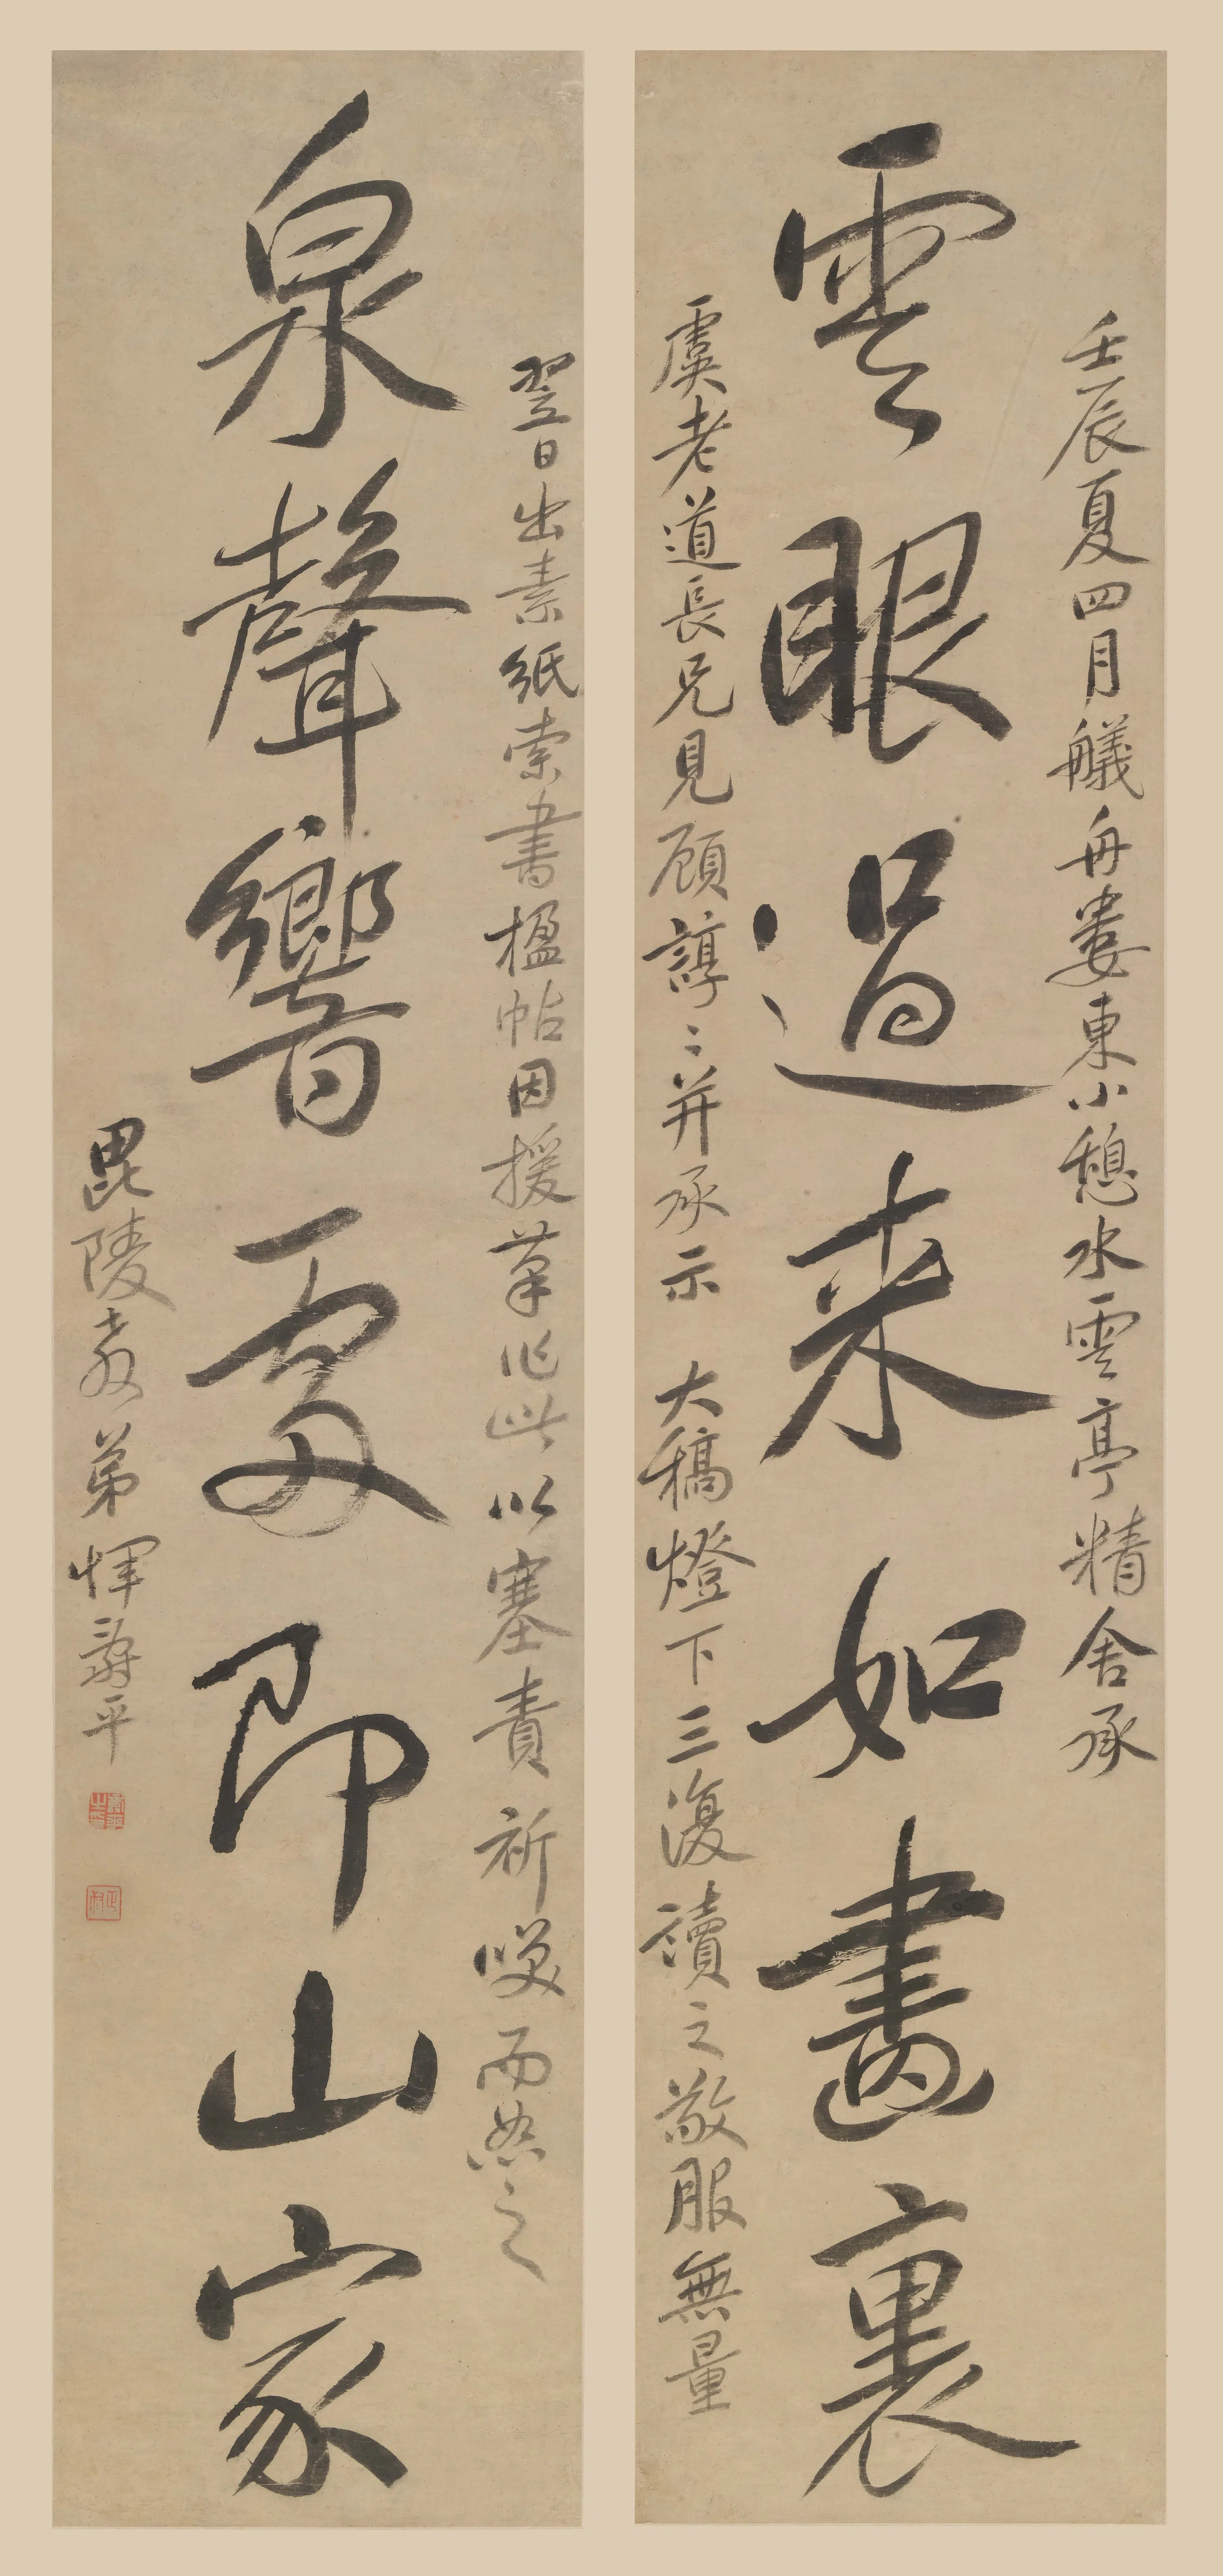 雲眼過来如畫裏
壬辰夏四月艤舟婁東小憩水雲亭精舍承
虞老道長兄見顧諄〻并承示 大稿燈下三復讀之敬服無量
泉聲響處即山家
翌日出素紙索書楹帖因援筆作此以塞責祈哂而恕之
毘陵教弟惲壽平